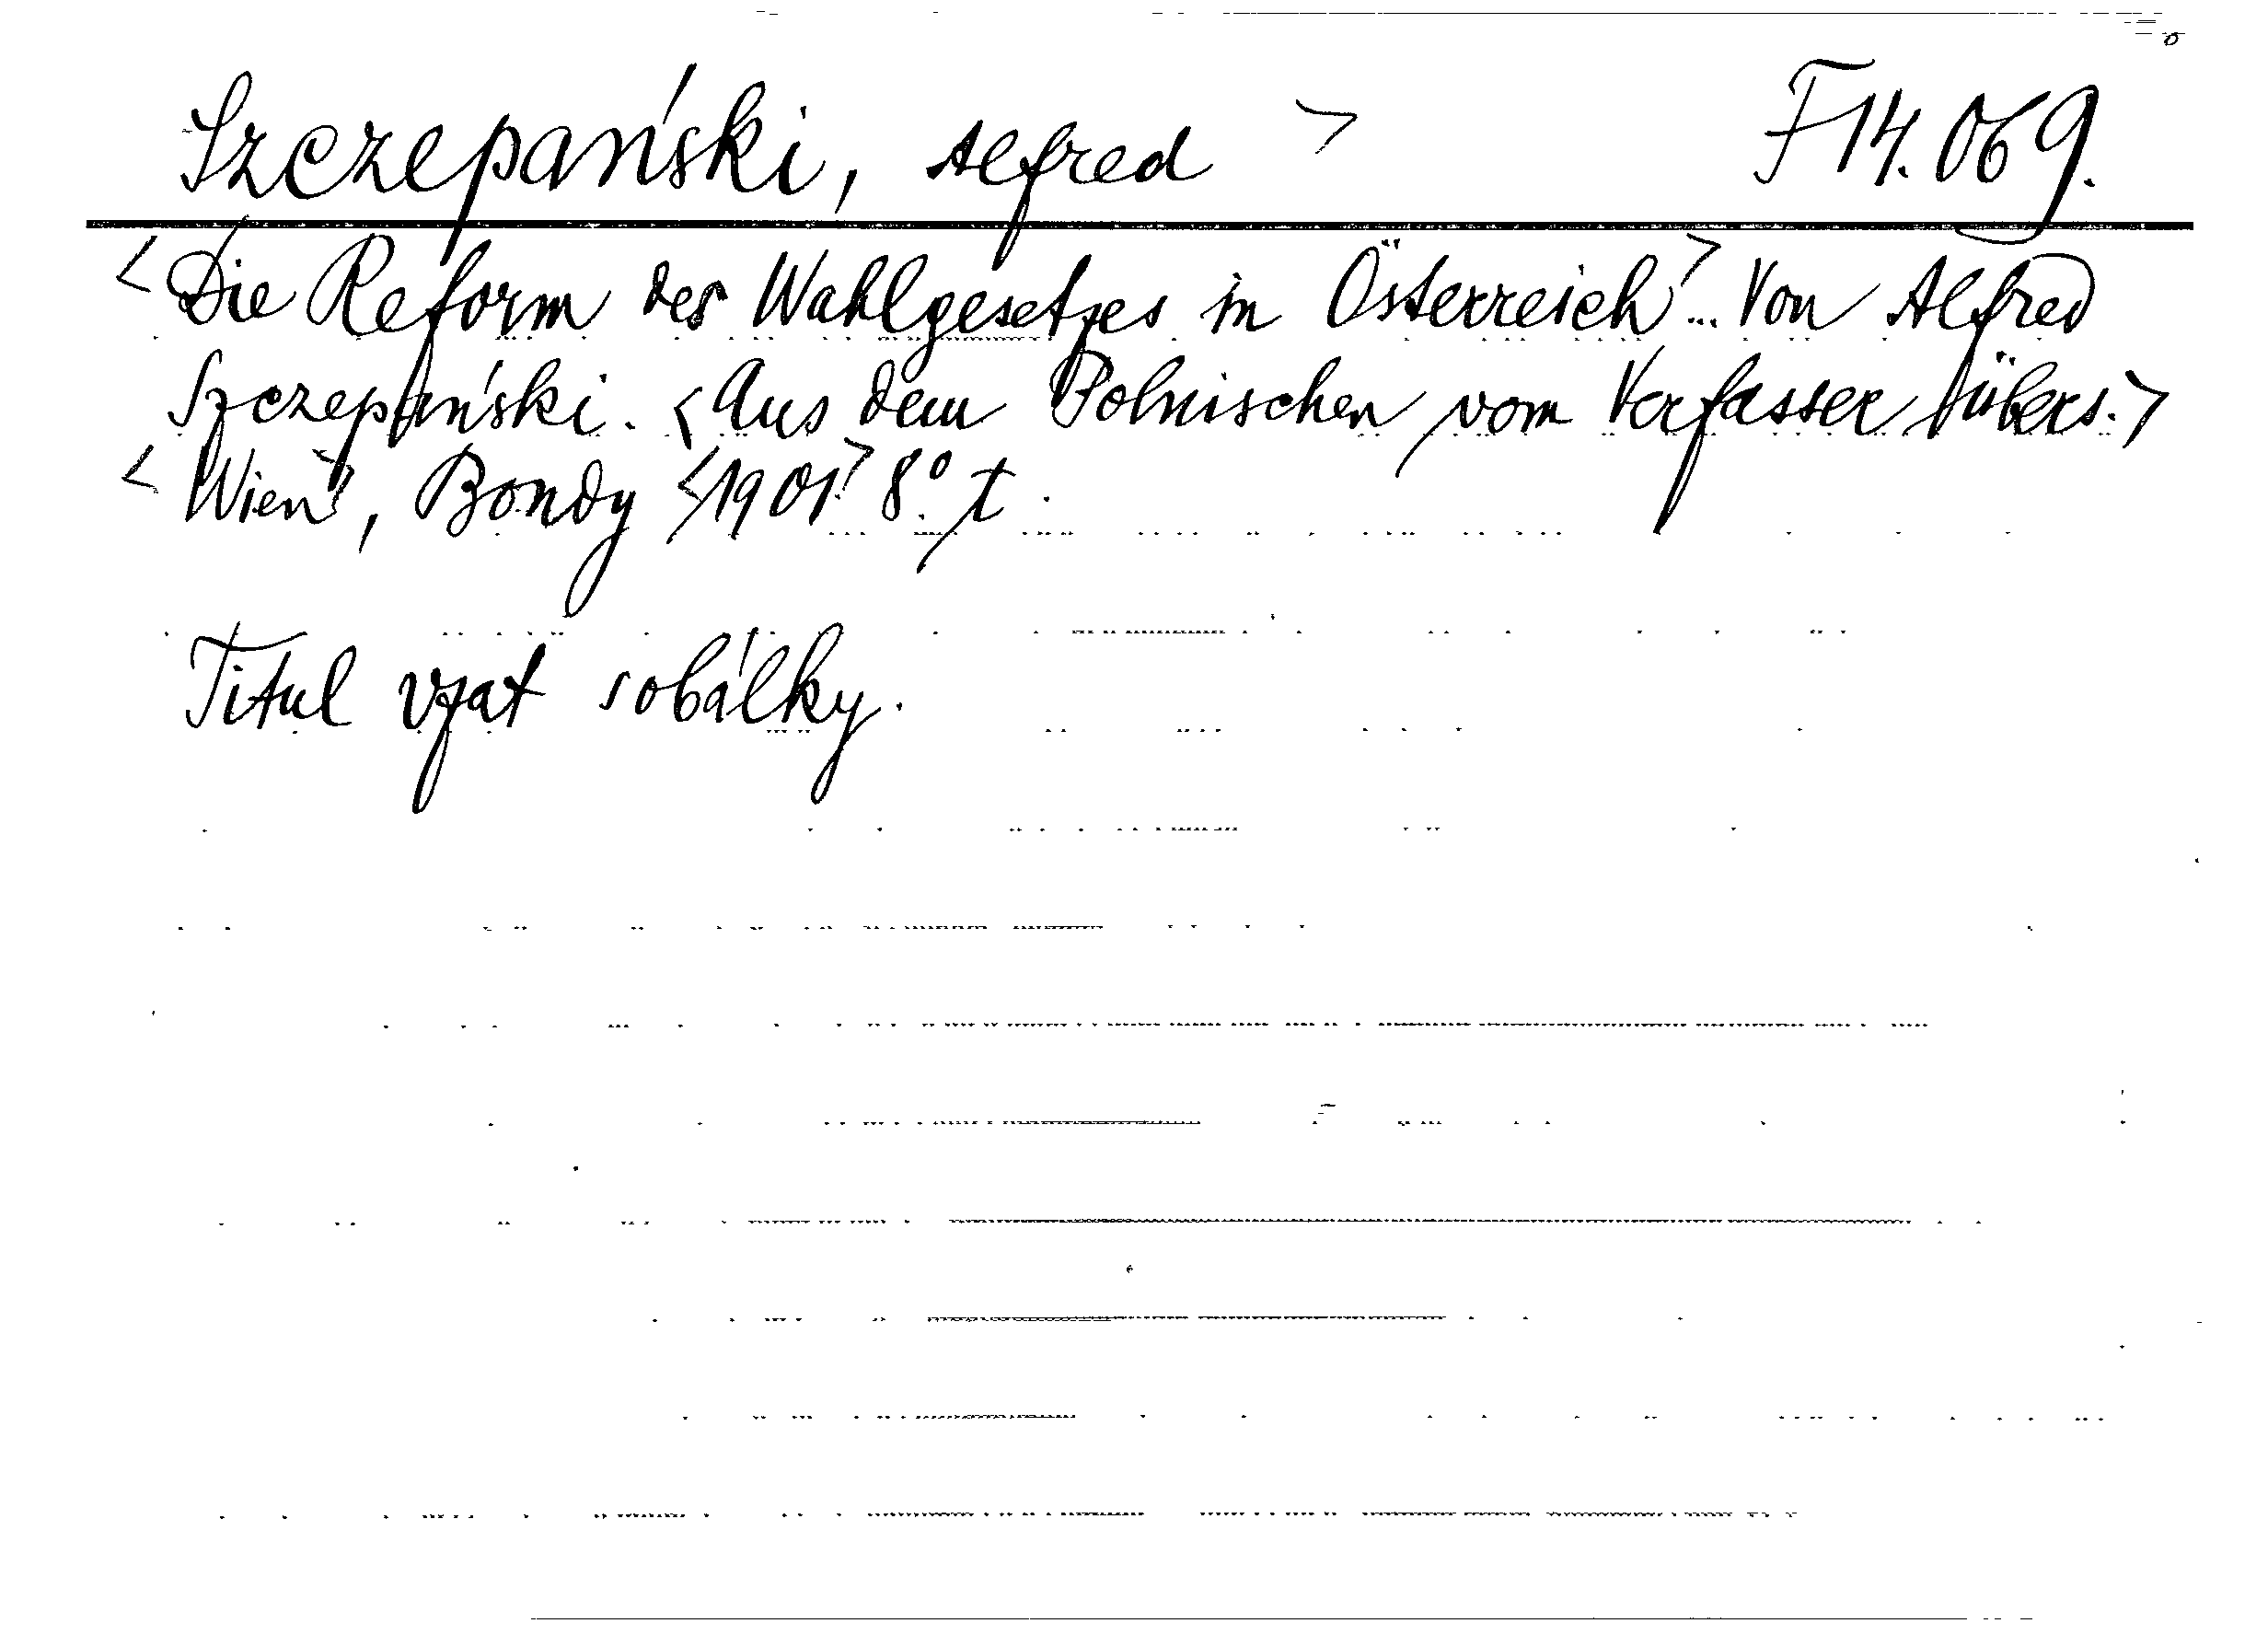 Szczepański, Alfred > F 14.069.
<Die Reform des Wahlgesetzes in Österreich>... Von Alfred
Szczepański. <Aus dem Polnischen vom Verfasser übers.>
<Wien>, Bondy <1901> 8° t.
Titul vzat s obálky.